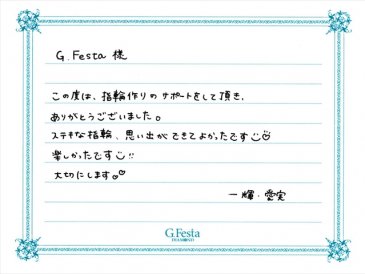 G.Festa 様
この度は、指輪作りのサポートをして頂き、
ありがとうございました。
ステキな指輪、思い出ができてよかったです
楽しかったです!!
大切にします。
一輝・愛実
G.Festa